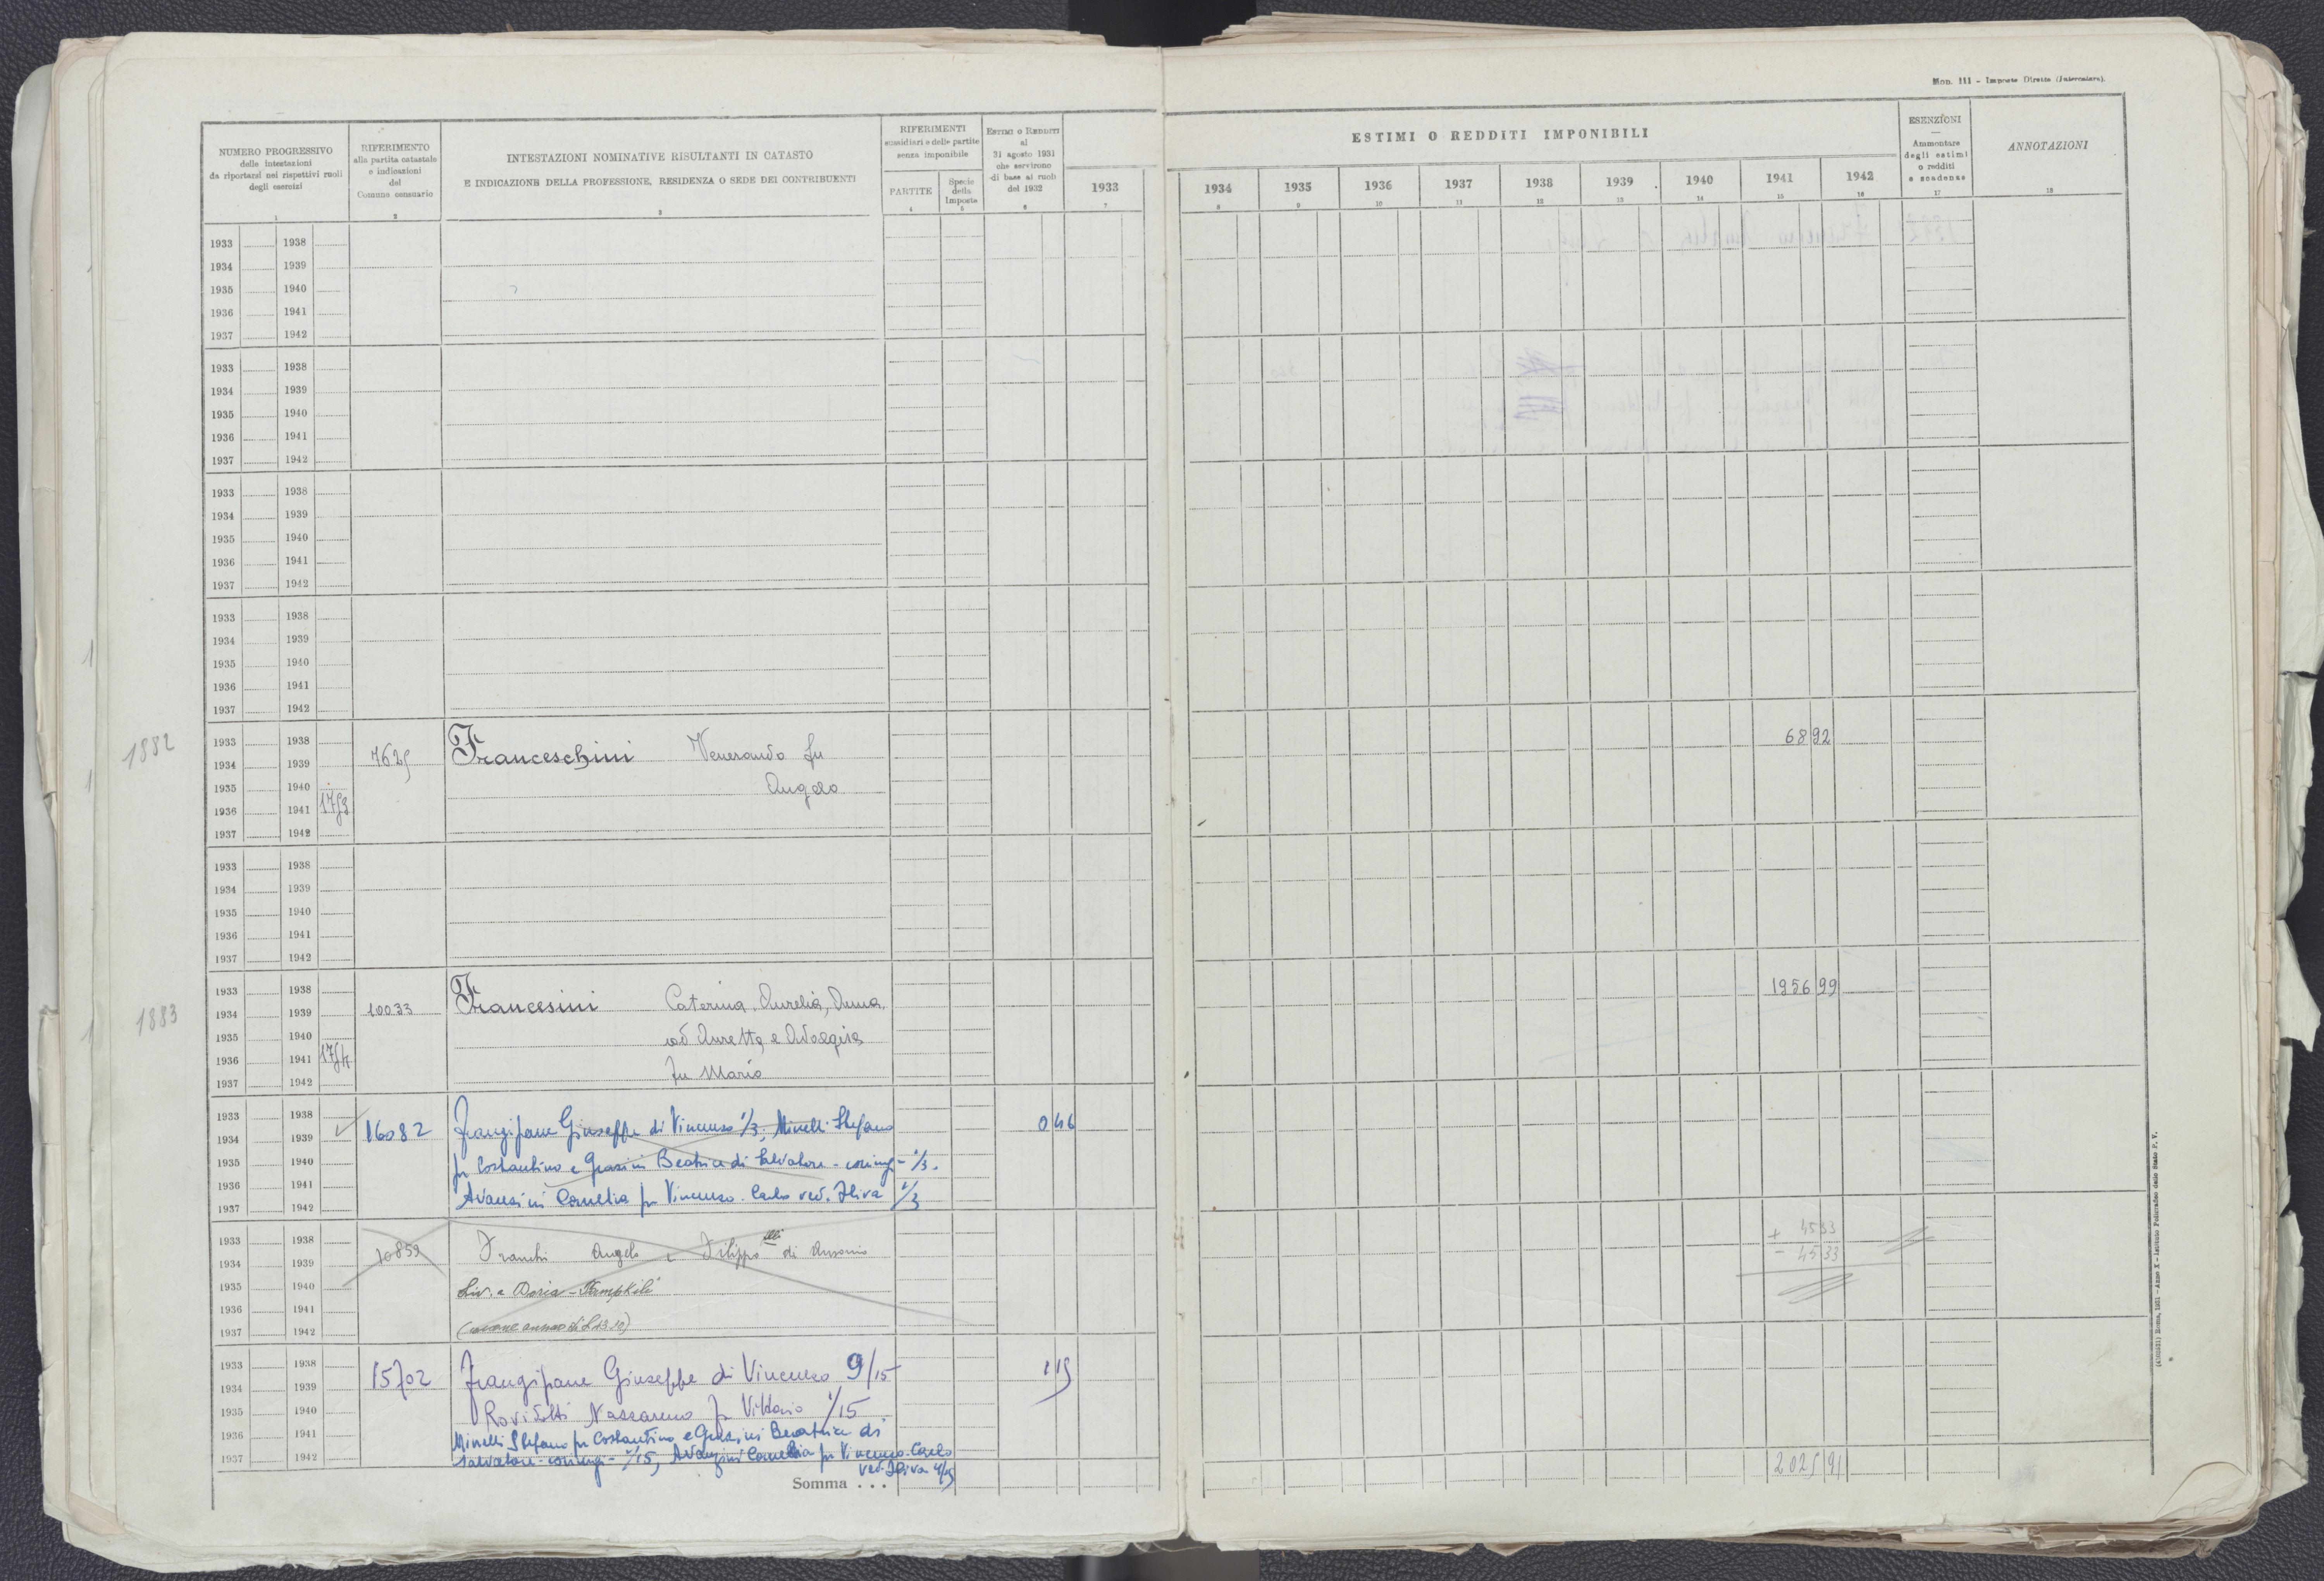 Mod. 111 - Imposte Dirette (Intercalare).
NUMERO PROGRESSIVO
delle intestazioni
da riportarsi nei rispettivi ruoli
degli esercizi
1
RIFERIMENTO
alla partita catastale
e indicazioni
del
Comune censuario
2
INTESTAZIONI NOMINATIVE RISULTANTI IN CATASTO
E INDICAZIONE DELLA PROFESSIONE, RESIDENZA O SEDE DEI CONTRIBUENTI
3
RIFERIMENTI
sussidiari e delle partite
senza imponibile
PARTITE
4
Specie
della
Imposta
5
ESTIMI O REDDITI
al
31 agosto 1931
che servirono
di base ai ruoli
del 1932
6
1933
7
ESTIMI O REDDITI IMPONIBILI
1934 1935 1936 1937 1938 1939 1940 1941 1942
8 9 10 11 12 13 14 15 16
ESENZIONI
Ammontare
degli estimi
o redditi
e scadenze
17
ANNOTAZIONI
18
1933 1938
1934 1939
1935 1940
1936 1941
1937 1942
1933 1938
1934 1939
1935 1940
1936 1941
1937 1942
1933 1938
1934 1939
1935 1940
1936 1941
1937 1942
1933 1938
1934 1939
1935 1940
1936 1941
1937 1942
1882
1933 1938 6892
1934 1939 7625 Franceschini Venerando fu
1935 1940 Angelo
1936 1941 1753
1937 1942
1933 1938
1934 1939
1935 1940
1936 1941
1937 1942
1883
1933 1938 1956 99
1934 1939 10033 Francesini Caterina, Aurelia, Anna,
1935 1940 ed Auretta e Adalgisa
1936 1941 1754
1937 1942 fu Mario
1933 1938
1934 1939 16082 Frangipane Giuseppe di Vincenzo 1/3, Minelli Stefano 0 46
1935 1940 fu Costantino e Grasini Beatrice di Salvatore - coniugi - 1/3.
1936 1941
1937 1942 Avanzini Cornelia fu Vincenzo Carlo ved. Oliva 1/3
1933 1938 + 4533
1934 1939 10859 Franchi Angelo e Filippo di Ausonio - 4533
1935 1940 Liv. a Doria-Pamphili
1936 1941
1937 1942
1933 1938
1934 1939 15702 Frangipane Giuseppe di Vincenzo 9/15 1 15
1935 1940 Nazzareno fu Vittorio 1/15
1936 1941 Minelli Stefano fu Costantino e Grasini Beatrice di
1937 1942 Salvatore - coniugi - 1/15, Avanzini Cornelia fu Vincenzo Carlo
ved. Oliva 4/15
2025 91
Somma . . .